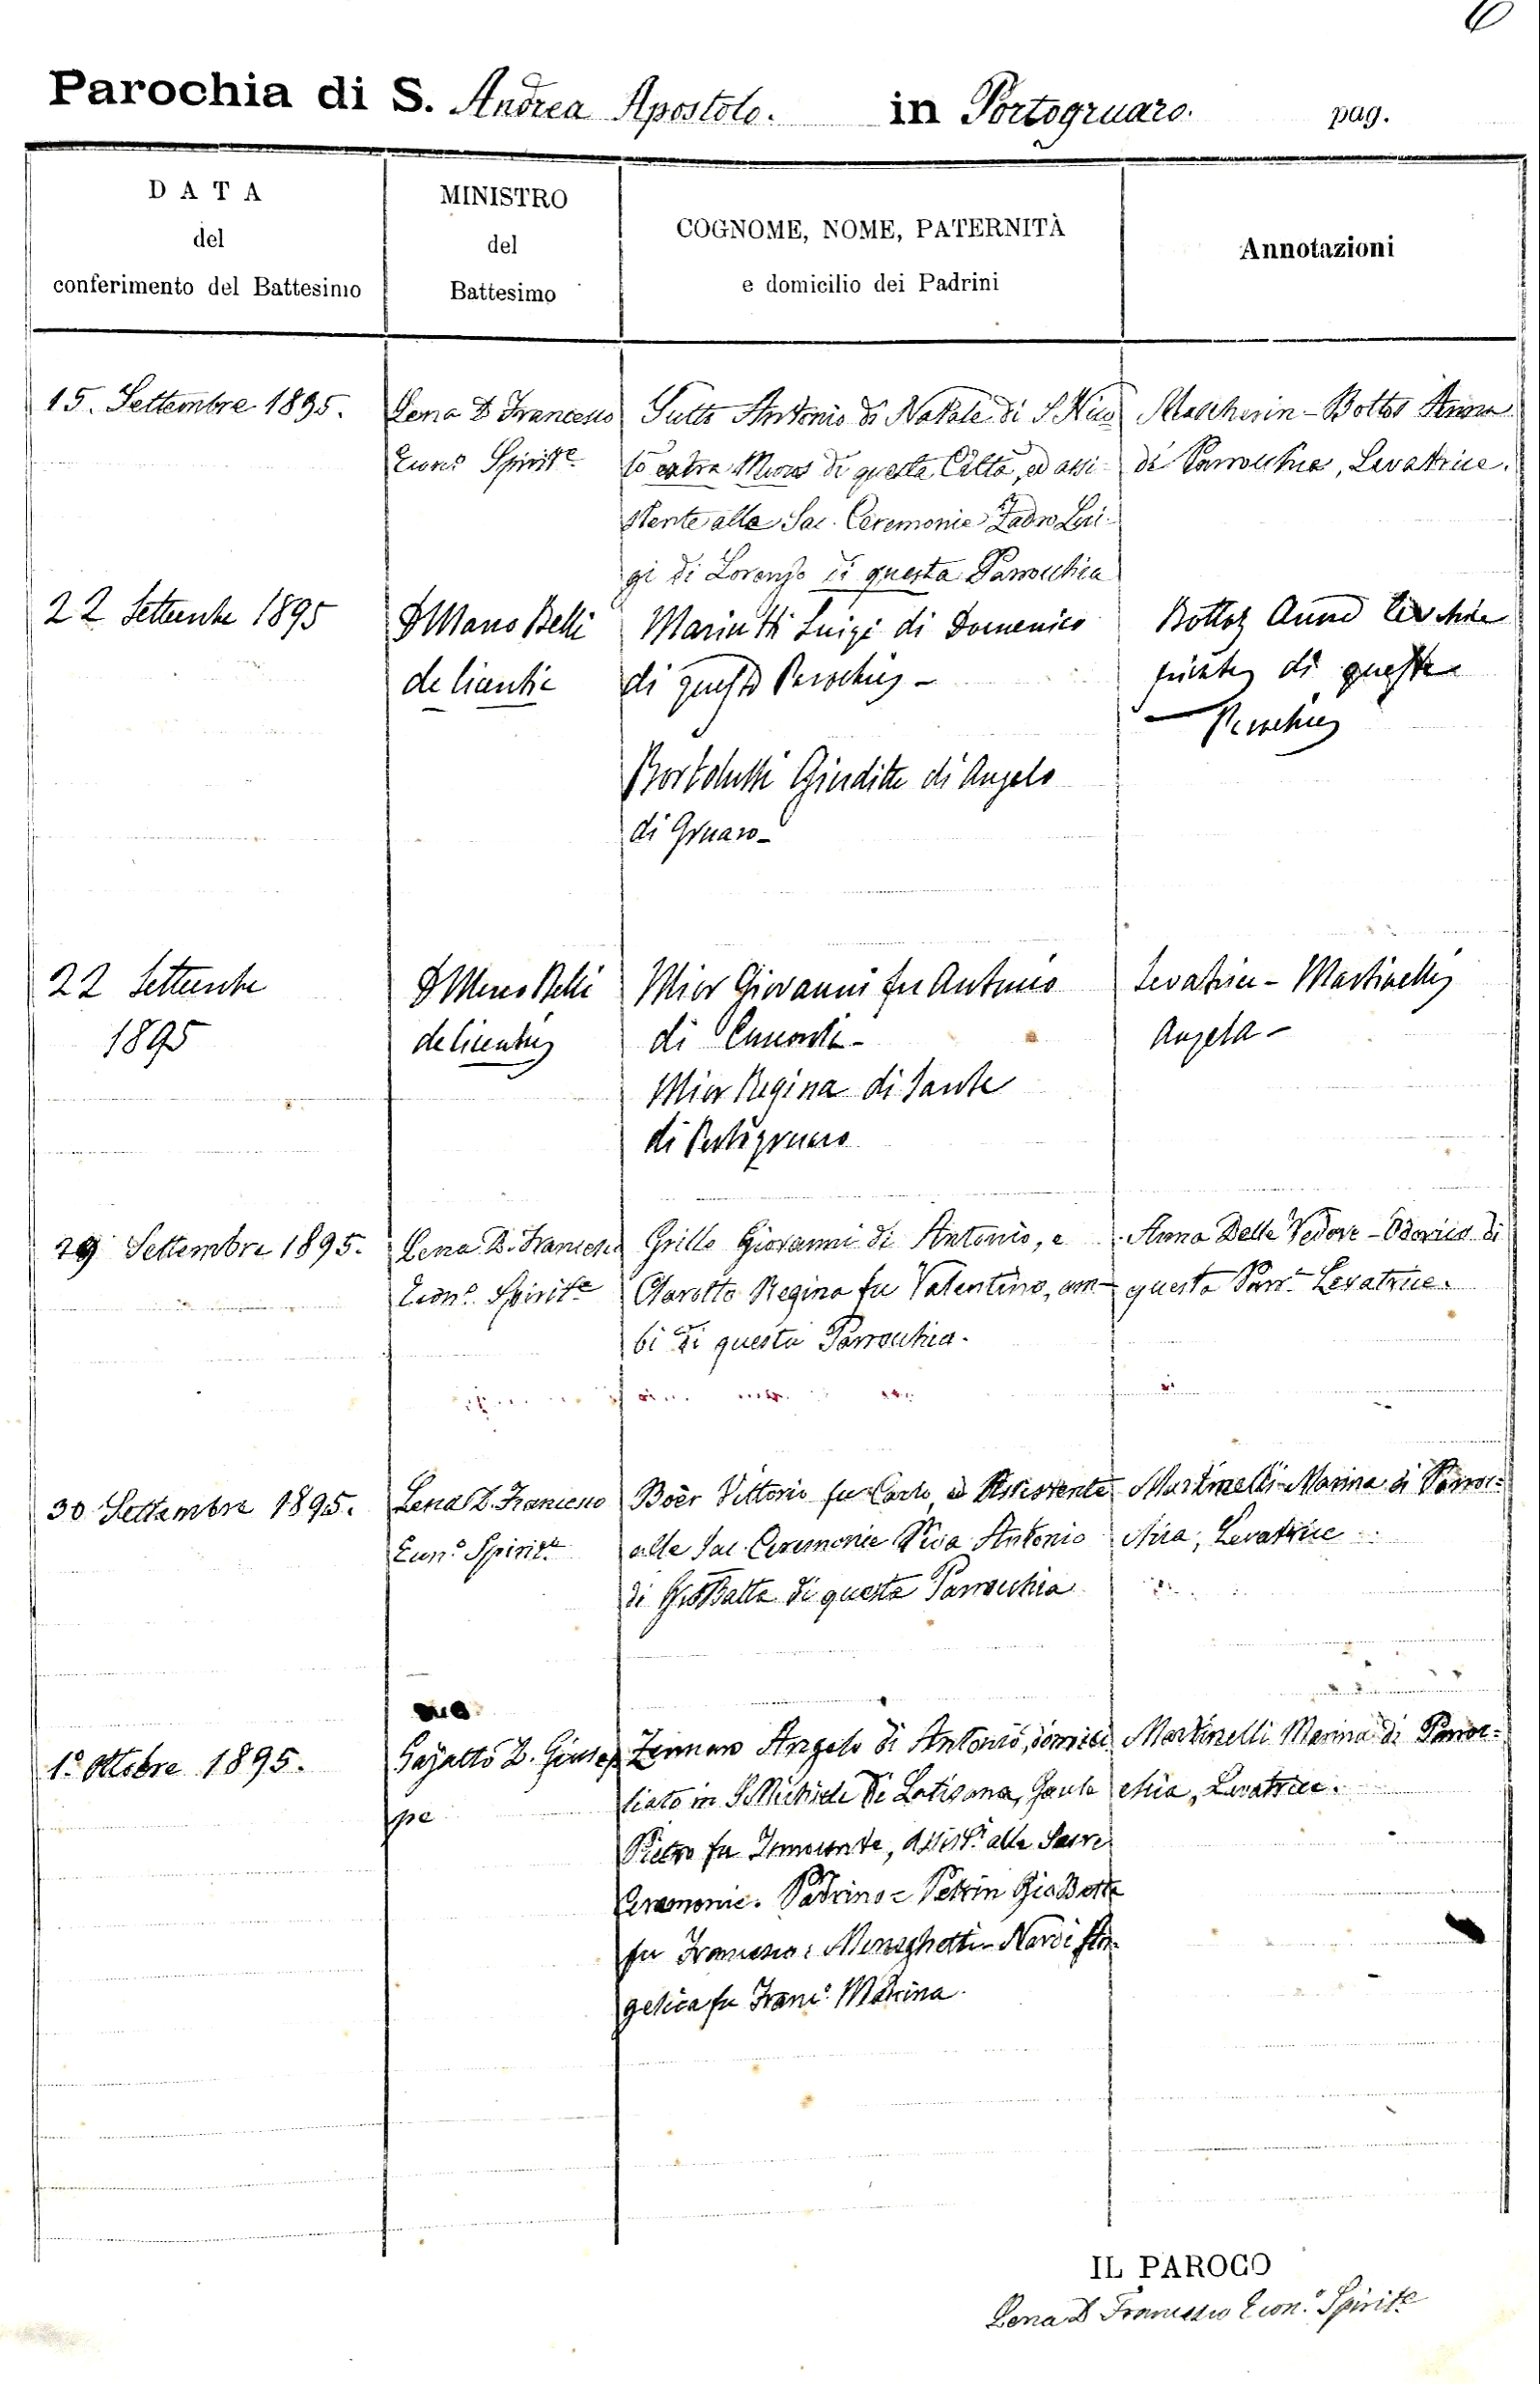 6
Parochia di S. Andrea Apostolo. in Portogruaro. pag.
DATA
del
conferimento del Battesimo
MINISTRO
del
Battesimo
COGNOME, NOME, PATERNITÀ
e domicilio dei Padrini
Annotazioni
15. Settembre 1895.
Lena D. Francesco
Econ.o Spirit.e
Antonio di Natale di S. Nico
lò extra Muros di questa Città, ed assi-
stente alla Sac. Ceremonie Zadro Lui-
gi di Lorenzo di questa Parrocchia
Mascherin - Bottos Anna
di Parrocchia, Levatrice.
22 Settembre 1895
D Marco Belli
de licentia
Mariutti Luigi di Domenico
di questa Parochia -
Bortolussi Giuditta di Angelo
di Gruaro -
Bottos Anna
di questa
Parochia
22 Settembre
1895
D Marco Belli
de licentia
Mior Giovanni fu Antonio
di Concordia -
Mior Regina di Sante
di Portogruaro
Levatrice - Martinelli
Angela -
29 Settembre 1895.
Lena D. Francesco
Econ.o Spirit.e
Grillo Giovanni di Antonio, e
Regina fu Valentino, am-
bi di questa Parrocchia.
Anna Delle Vedove - Odorico di
questa Parr.a Levatrice.
30 Settembre 1895.
Lena D. Francesco
Econ.o Spirit.e
Boèr Vittorio fu Carlo, ed Assistente
alle Sac. Ceremonie Antonio
di GioBatta di questa Parrocchia
Martinelli Marina di Parroc=
chia, Levatrice
1.o Ottobre 1895.
Gajatto D. Giusep
pe
Angelo di Antonio, domici
liato in S. Michele di Latisana,
Pietro fu Innocente, Assist.i alle Sacre
Ceremonie. Padrino = Petrin GioBatta
fu Francesco: Meneghetti - Nardi An-
gelica fu Franc.o Madrina.
Martinelli Marina di Parroc=
chia, Levatrice.
IL PAROCO
Lena D Francesco Econ.o Spirit.e